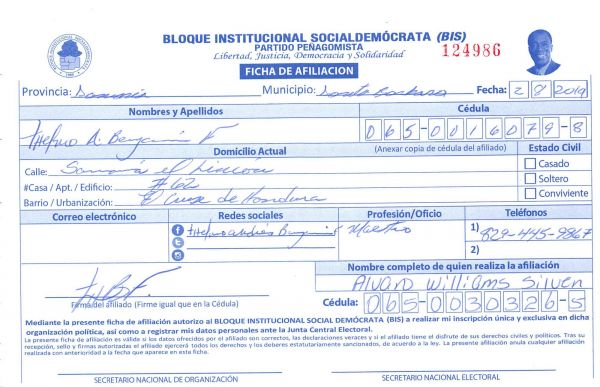 BLOQUE INSTITUCIONAL SOCIALDEMÓCRATA (BIS)
PARTIDO PEÑAGOMISTA
Libertad, Justicia, Democracia y Solidaridad
124986
FICHA DE AFILIACION
Provincia: Samaná Municipio: Santa Barbara Fecha: 2 8 2019
Nombres y Apellidos Cédula
A. Benjamin F 065-0016079-8
Domicilio Actual (Anexar copia de cédula del afiliado) Estado Civil
Calle: Samaná el Rincón Casado
#Casa / Apt. / Edificio: #62 Soltero
Barrio / Urbanización: El Cruce de Hondura Conviviente
Correo electrónico Redes sociales Profesión/Oficio Teléfonos
Benjamin F Maestro 1) 829-445-9867
2)
Nombre completo de quien realiza la afiliación
Alvaro Williams Silven
Firma del afiliado (Firme igual que en la Cédula) Cédula: 065-0030326-5
Mediante la presente ficha de afiliación autorizo al BLOQUE INSTITUCIONAL SOCIAL DEMÓCRATA (BIS) a realizar mi inscripción única y exclusiva en dicha
organización política, así como a registrar mis datos personales ante la Junta Central Electoral.
La presente ficha de afiliación es válida si los datos ofrecidos por el afiliado son correctos, las declaraciones veraces y si el afiliado tiene el disfrute de sus derechos civiles y políticos. Tras su
recepción, sello y firmas autorizadas el afiliado ejercerá todos los derechos y los deberes estatutariamente sancionados, de acuerdo a la ley. La presente afiliación anula cualquier afiliación
realizada con anterioridad a la fecha que aparece en esta ficha.
SECRETARIO NACIONAL DE ORGANIZACIÓN SECRETARIO NACIONAL ELECTORAL